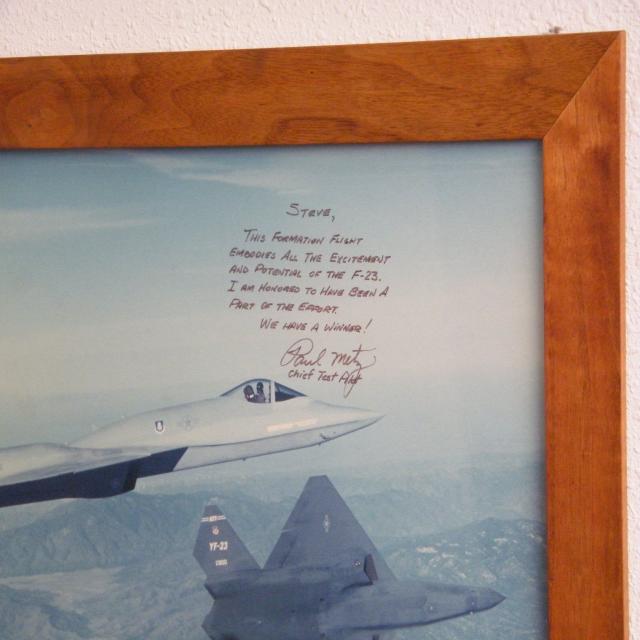 STEVE,
THIS FORMATION FLIGHT
EMBODIES ALL THE EXCITEMENT
AND POTENTIAL OF THE F-23.
I AM HONORED TO HAVE BEEN A
PART OF THE EFFORT.
WE HAVE A WINNER!
Paul Metz
Chief Test Pilot
YF-23